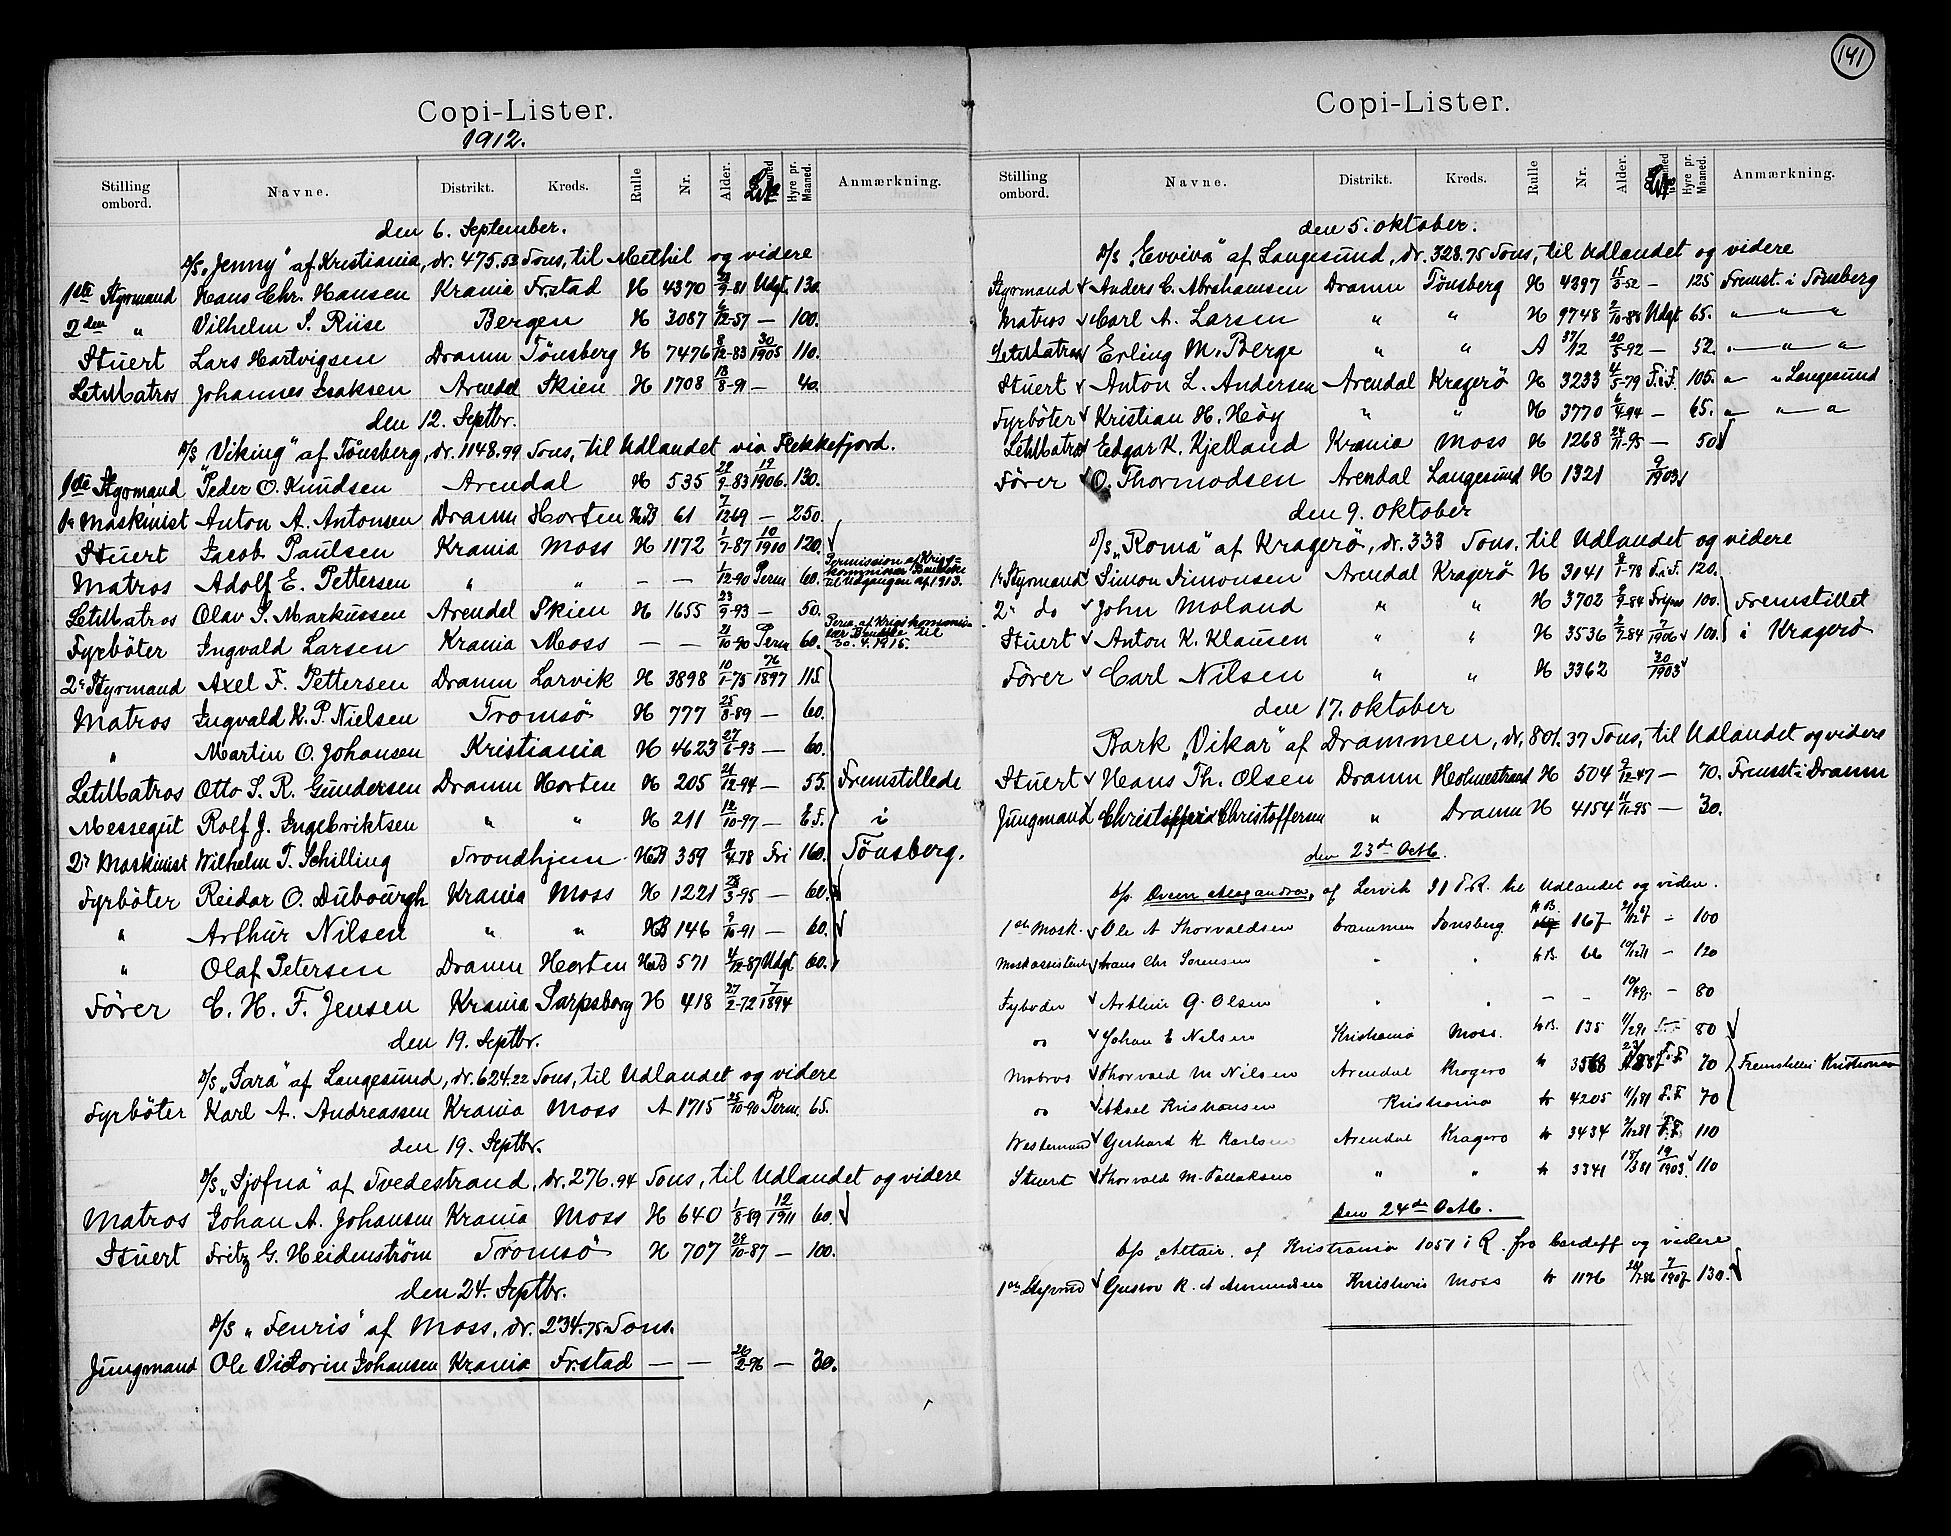 Copi-Lister.
1912.
Stilling ombord. Navne. Distrikt. Kreds. Rulle Nr. Alder. Hyre pr. Maaned. Anmærkning.
den 6. September.
D/S „Jenny" af Kristiania, dr. 475.52 Tons, til Methil og videre
1ste Styrmand Hans Chr. Hansen Krania Fr.stad H 4370 9-81 Udgt. 130.
2den " Vilhelm S. Riise Bergen H 3087 6/12-57 — 100.
Stuert Lars Hartvigsen Dramn Tönsberg H 7476 8/12-83 30/1905 110.
LetMatros Johannes Isaksen Arendal Skien H 1708 13/8-91 — 40.
den 12. Septbr.
D/S „Viking" af Tönsberg, dr. 1148.99 Tons, til Udlandet via Flekkefjord.
1ste Styrmand Peder O. Knudsen Arendal H 535 29/9-83 19/1906. 130.
1r Maskinist Anton A. Antonsen Dramn Horten HB 61 7/12 69 — 250.
Stuert Jacob Paulsen Krania Moss H 1172 1/7-87 10/1910 120.
Matros Adolf E. Pettersen " " — — 1/12-90 Perm 60. Permission af Krigskommissær til Udgangen af 1913.
LetMatros Olav S. Markussen Arendal Skien H 1655 23/9-93 — 50.
Fyrböter Ingvald Larsen Krania Moss — — 21/10-90 Perm 60. Perm. af Krigskommissær til 30. 4. 1915.
2r Styrmand Axel F. Pettersen Dramn Larvik H 3898 10/1-75 76/1897 115.
Matros Ingvald K. P. Nielsen Tromsö H 777 25/8-89 — 60.
" Martin O. Johansen Kristiania H 4623 27/6-93 — 60.
LetMatros Otto S. R. Gundersen Dramn Horten H 205 21/12-94 — 55. Fremstillede
Messegut Rolf J. Ingebriktsen " " H 211 12/10-97 — 25. i
2r Maskinist Wilhelm T. Schilling Trondhjem HB 359 11/4-78 Fri 160. Tönsberg.
Fyrböter Reidar O. Dubourgh Krania Moss H 1221 28/3-95 — 60.
" Arthur Nilsen " " HB 146 9/10-91 — 60.
" Olaf Petersen Dramn Horten HB 571 4/12-87 Udgt 60.
Förer C. H. F. Jensen Krania Sarpsborg H 418 27/2-72 7/1894
den 19. Septbr.
D/S „Sara" af Langesund, dr. 624.22 Tons, til Udlandet og videre
Fyrböter Karl A. Andreassen Krania Moss A 1715 25/10-90 Perm. 65.
den 19. Septbr.
D/S „Sjofna" af Tvedestrand, dr. 276.94 Tons, til Udlandet og videre
Matros Johan A. Johansen Krania Moss H 640 1/8-89 12/1911 60.
Stuert Fritz G. Heidenström Tromsö H 707 29/10-87 — 100.
den 24. Septbr.
D/S „Fenris" af Moss, dr. 234.75 Tons.
Jungmand Ole Victorin Johansen Krania Fr.stad — — 26/2-96 — 30.
141
Copi-Lister.
Stilling ombord. Navne. Distrikt. Kreds. Rulle Nr. Alder. Hyre pr. Maaned. Anmærkning.
den 5. Oktober.
D/S „Evviva" af Langesund, dr. 328.75 Tons, til Udlandet og videre
Styrmand Anders C. Abrahamsen Dramn Tönsberg H 4397 15/3-52 — 125 Fremst. i Tönsberg
Matros Carl A. Larsen " " H 9748 2/10-88 Udgt 65. " " "
LetMatros Erling M. Berge " " A 37/12 20/5-92 — 52. " " "
Stuert Anton L. Andersen Arendal Kragerö H 3233 4/5-79 F.i.F. 105. " " Langesund
Fyrböter Kristian H. Höy " " H 3770 6/4 94 — 65. " " "
LetMatros Edgar K. Kjelland Krania Moss H 1268 24/11-95 — 50
Förer O. Thormodsen Arendal Langesund H 1321 9/1903
den 9. Oktober
D/S „Roma" af Kragerö, dr. 333 Tons, til Udlandet og videre
1r Styrmand Simon Simonsen Arendal Kragerö H 3041 9/1-78 F.i.F. 120.
2r do John Moland " " H 3702 2/9-84 100. Fremstillet
Stuert Anton K. Klausen " " H 3536 2/2 84 7/1906 100. i Kragerö
Förer Carl Nilsen " " H 3362 30/1903
den 17. Oktober
Bark „Vikar" af Drammen, dr. 801.37 Tons, til Udlandet og videre
Stuert Hans Th. Olsen Dramn Holmestrand H 504 9/12-47 — 70. Fremst. i Dramn
Jungmand Christoffersen " Dramn H 4154 11/11-95 — 30.
den 23de Octb.
af Lervik 91 T.R. til Udlandet og videre.
1ste Mask. Ole A Thorvaldsen Drammen Tonsberg HB 167 — 100
Maskassistent Hans Chr Sorensen " " HB 66 — 120
Fyrboder Arthur G. Olsen " " — — — 80
do Johan E Nilsen Kristiania Moss. HB. 135 F.F 80
Matros Thorvald M Nilsen Arendal Kragero H 3568 F.F 70 Fremstillet i Kristiania
do Aksel Kristiansen Kristiania H 4205 11/1 81 F.F 70
Gerhard K Karlsen Arendal Kragero H 3434 F.F. 110
Stuert Thorvald M. " " H 3341 13/3 81 19/1903. 110
Den 24de Octb.
D/S Altair. af Kristiania 1051 i R. fra Cardiff og videre
1ste Styrmd Gustav R. A Amundsen Kristiania Moss H 1176 7/1907 130.